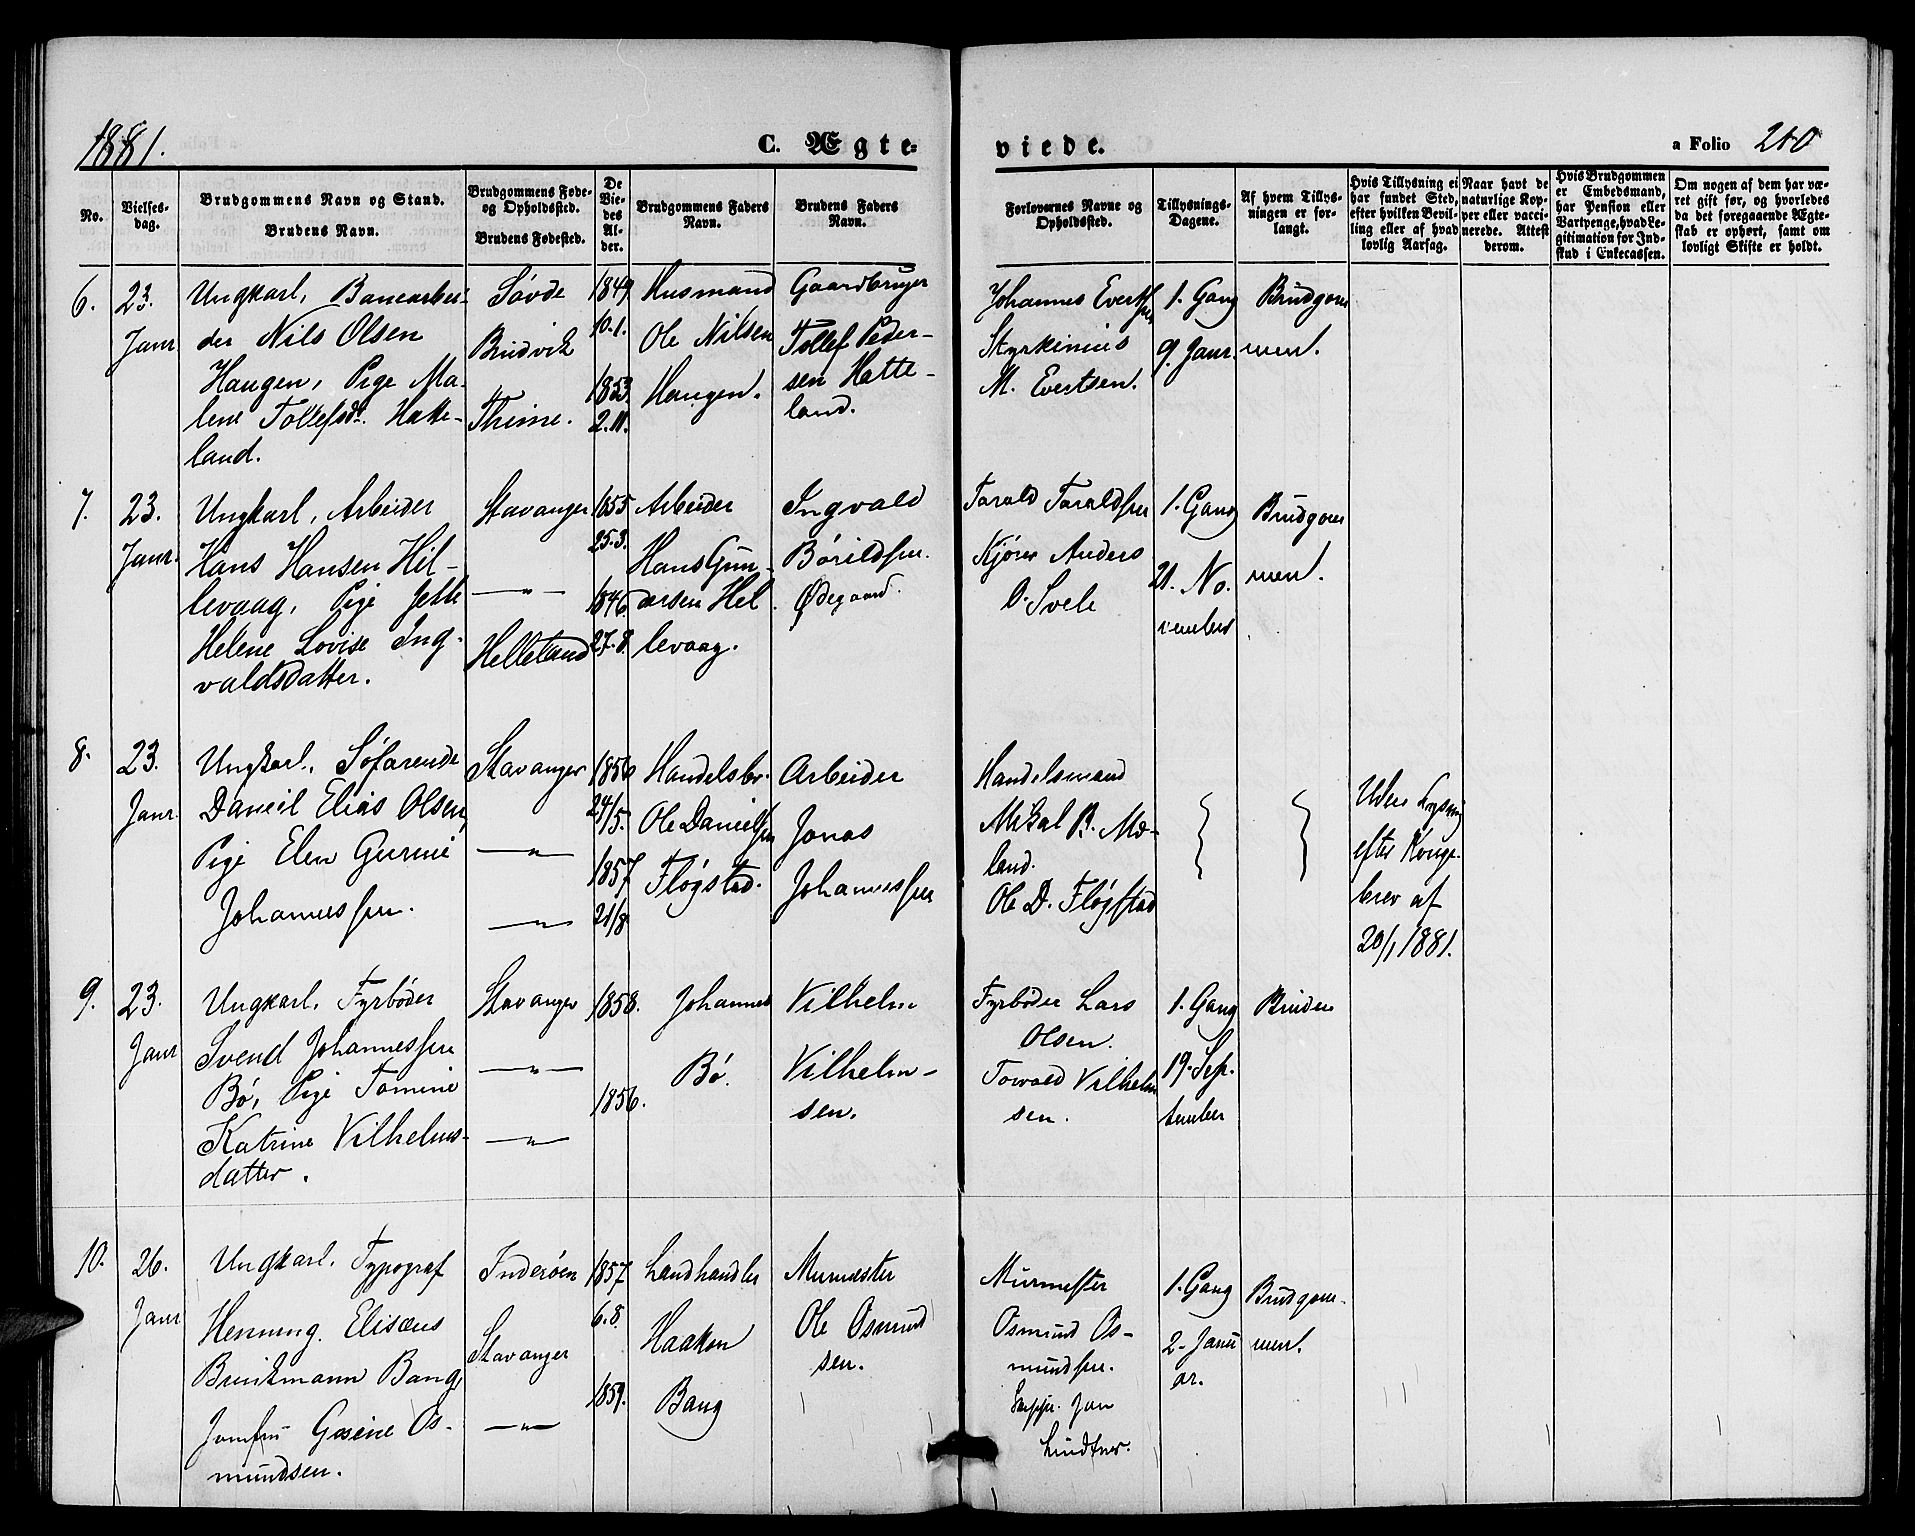 1881.
C. Ægte-
viede.
a Folio 210
No.
Vielses-
dag.
Brudgommens Navn og Stand.
Brudens Navn.
Brudgommens Føde-
og Opholdsted.
Brudens Fødested.
De
Vie-
des
Al-
der.
Brudgommens Faders
Navn.
Brudens Faders
Navn.
Forlovernes Navne og
Opholdsted.
Tillysnings-
Dagene.
Af hvem Tillys-
ningen er for-
langt.
Hvis Tillysning ei
har fundet Sted,
efter hvilken Bevil-
ling eller af hvad
lovlig Aarsag.
Naar havt de
naturlige Kop-
per eller vacci-
nerede. Attest
derom.
Hvis Brudgommen
er Embedsmand,
har Pension eller
Vartpenge, hvad Le-
gitimation for Ind-
skud i Enkecassen.
Om nogen af dem har væ-
ret gift før, og hvorledes
da det foregaaende Ægte-
skab er ophørt, samt om
lovligt Skifte er holdt.
6.
23.
Janr
Ungkarl, Banearbei-
der Nils Olsen
Haugen, Pige Ma-
lene Tollefsdr. Hatte-
land.
Søvde
Bruvik
Thime.
1849
10.1.
1853
2.11.
Husmand
Ole Nilsen
Haugen.
Gaardbruger
Tollef Peder-
sen Hatte-
land.
Johannes Evertsen
Styrkinius
M. Evertsen.
1. Gang
9. Janr.
Brudgom
men.
7.
23.
Janr.
Ungkarl, Arbeider
Hans Hansen Hil-
levaag, Pige Jette
Helene Lovise Ing-
valdsdatter.
Stavanger
—"—
Helleland
1855
25.3.
1846
27.8.
Arbeider
Hans Gun-
arsen Hel
levaag.
Ingvald
Børildsen.
Ødegaard.
Tarald Taraldsen
Kjører Anders
O. Svele
1. Gang
21. No.
vember
Brudgom
men.
8.
23.
Janr.
Ungkarl, Søfarende
Daneil Elias Olsen,
Pige Elen Gurine
Johannessen.
Stavanger
—"—
—"—
1856
24/5.
1857
21/8
Handelsbr.
Ole Danielsen
Fløgstad.
Arbeider
Jonas
Johannessen
Handelsmand
Mikal B. Mæ-
land.
Ole D. Fløgstad
Uden Lysning
efter Konge-
brev af
20/1 1881.
9.
23.
Janr
Ungkarl, Fyrbøder
Svend Johannessen
Bø, Pige Tomine
Katrine Vilhelms-
datter.
Stavanger
—"—
—"—
1858.
1856.
Johannes
Bø.
Vilhelm
Vilhelm-
sen.
Fyrbøder Lars
Olsen.
Torvald Vilhelm
sen.
1. Gang
19. Sep.
tember
Bruden
10.
26.
Janr
Ungkarl, Typograf
Henning Elisæus
Brinkmann Bang,
Jomfru Gesine Os-
mundsen.
Inderøen
Stavanger
—"—
1857
6.8.
1859.
Landhandler
Haakon
Bang
Murmester
Ole Osmund
sen.
Murmester
Osmund Os-
mundsen.
Skippr. Jan
1. Gang
2. Janu
ar.
Brudgom-
men.